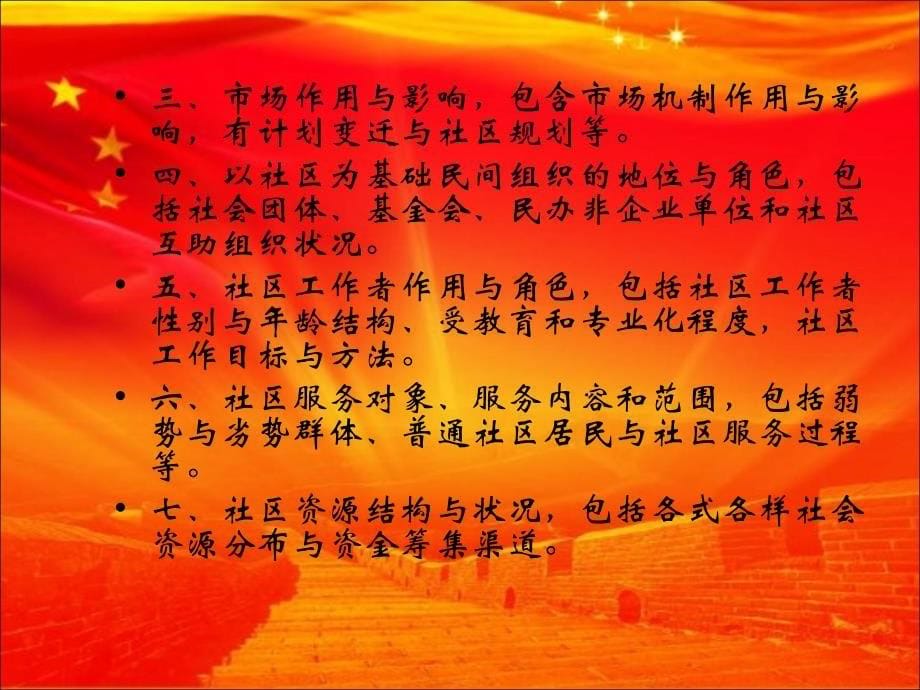 • 三、市场作用与影响，包含市场机制作用与影
响，有计划变迁与社区规划等。
• 四、以社区为基础民间组织的地位与角色，包
括社会团体、基金会、民办非企业单位和社区
互助组织状况。
• 五、社区工作者作用与角色，包括社区工作者
性别与年龄结构、受教育和专业化程度，社区
工作目标与方法。
• 六、社区服务对象、服务内容和范围，包括弱
势与劣势群体、普通社区居民与社区服务过程
等。
• 七、社区资源结构与状况，包括各式各样社会
资源分布与资金筹集渠道。